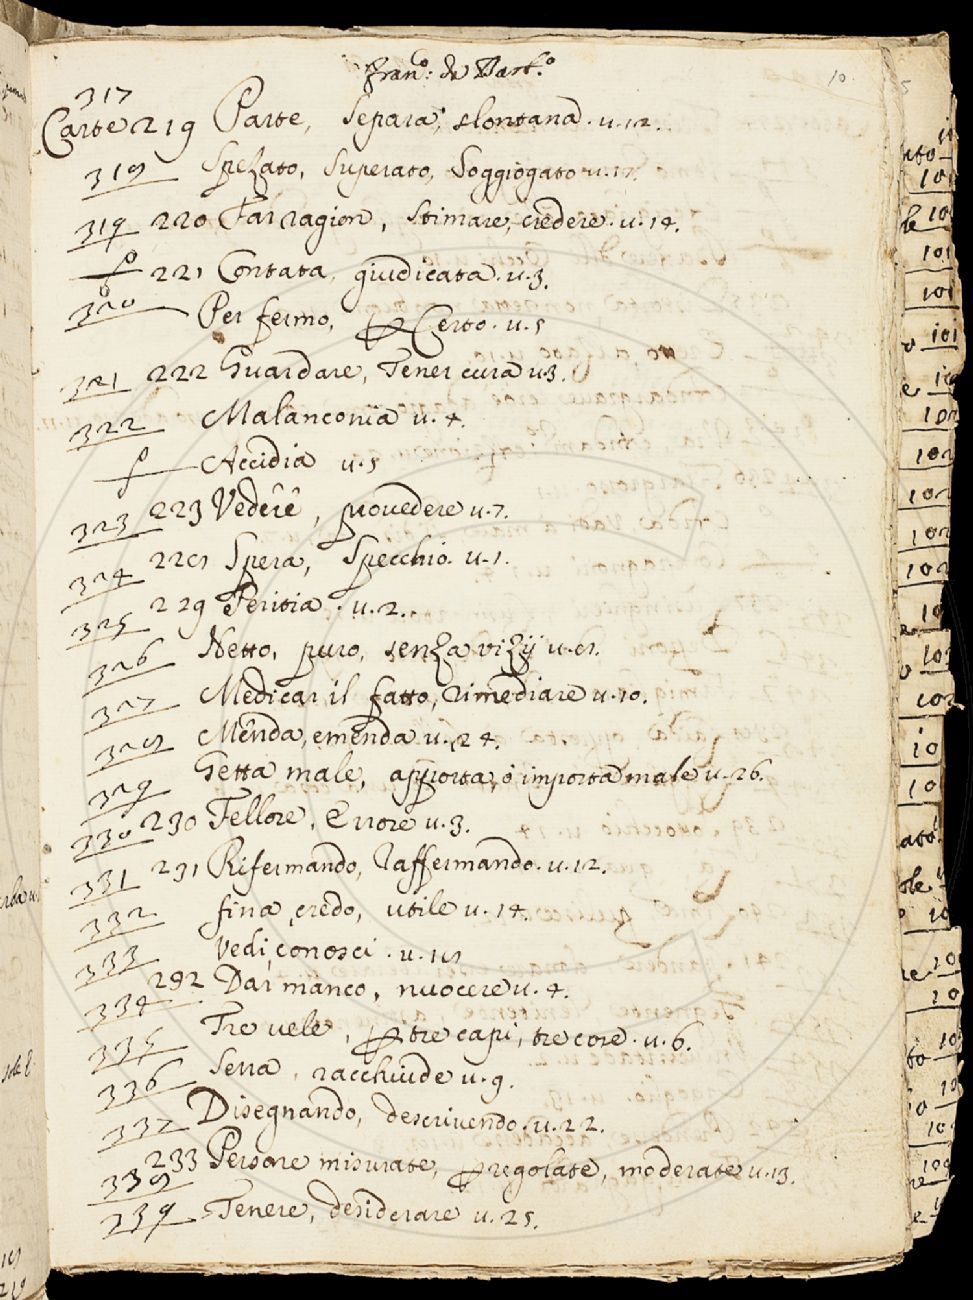 Franº: de Barbº.
10
317
Carte 219 Parte, Separa, slontana. v. 12.
318 Spezato, Superato, Soggiogato v. 17.
319 220 Far ragion, stimare, credere. v. 14.
221 Contata, giudicata. v. 3.
320 Per fermo, per Certo. v. 5
321 222 Guardare, Tener cura v. 3.
322 Malanconia v. 4.
Accidia v. 5
323 223 Vedêê, provedere v. 7.
324 228 Spera, Specchio. v. 1.
325 229 Peritia. v. 2.
326 Netto, puro, senza vizÿ v. 8.
327 Medicar il fatto, rimediare v. 10.
328 Menda, emenda v. 24.
329 Getta male, apporta, ò importa male v. 26.
330 230 Fellore, Errore v. 3.
331 231 Rifermando, Raffermando. v. 12.
332 fina, credo, utile v. 14.
333 Vedi, conosci. v. 18
334 232 Dar manco, nuocere v. 4.
335 Tre vele, per tre capi, tre core. v. 6.
336 Serra, racchiude v. 9.
337 Disegnando, descrivendo. v. 22.
338 233 Persone misurate, per regolate, moderate v. 13.
339 Tenere, desiderare v. 25.